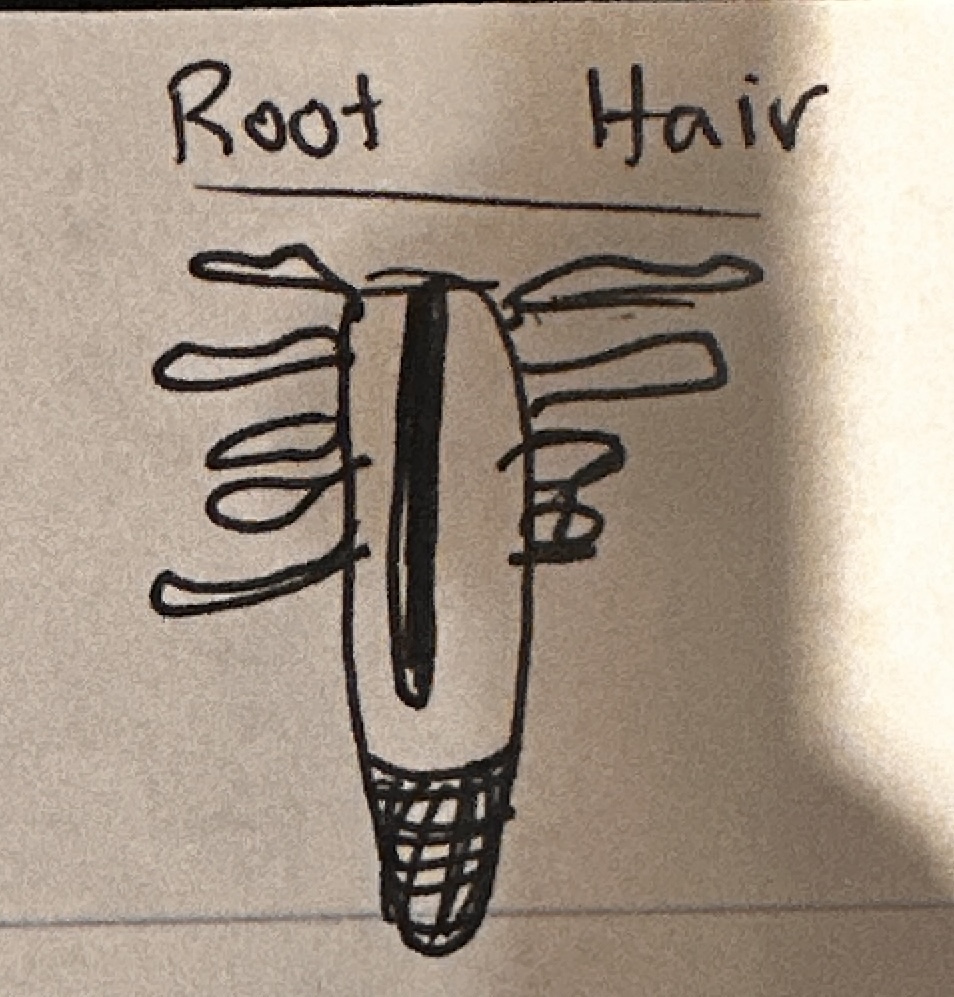 Root Hair